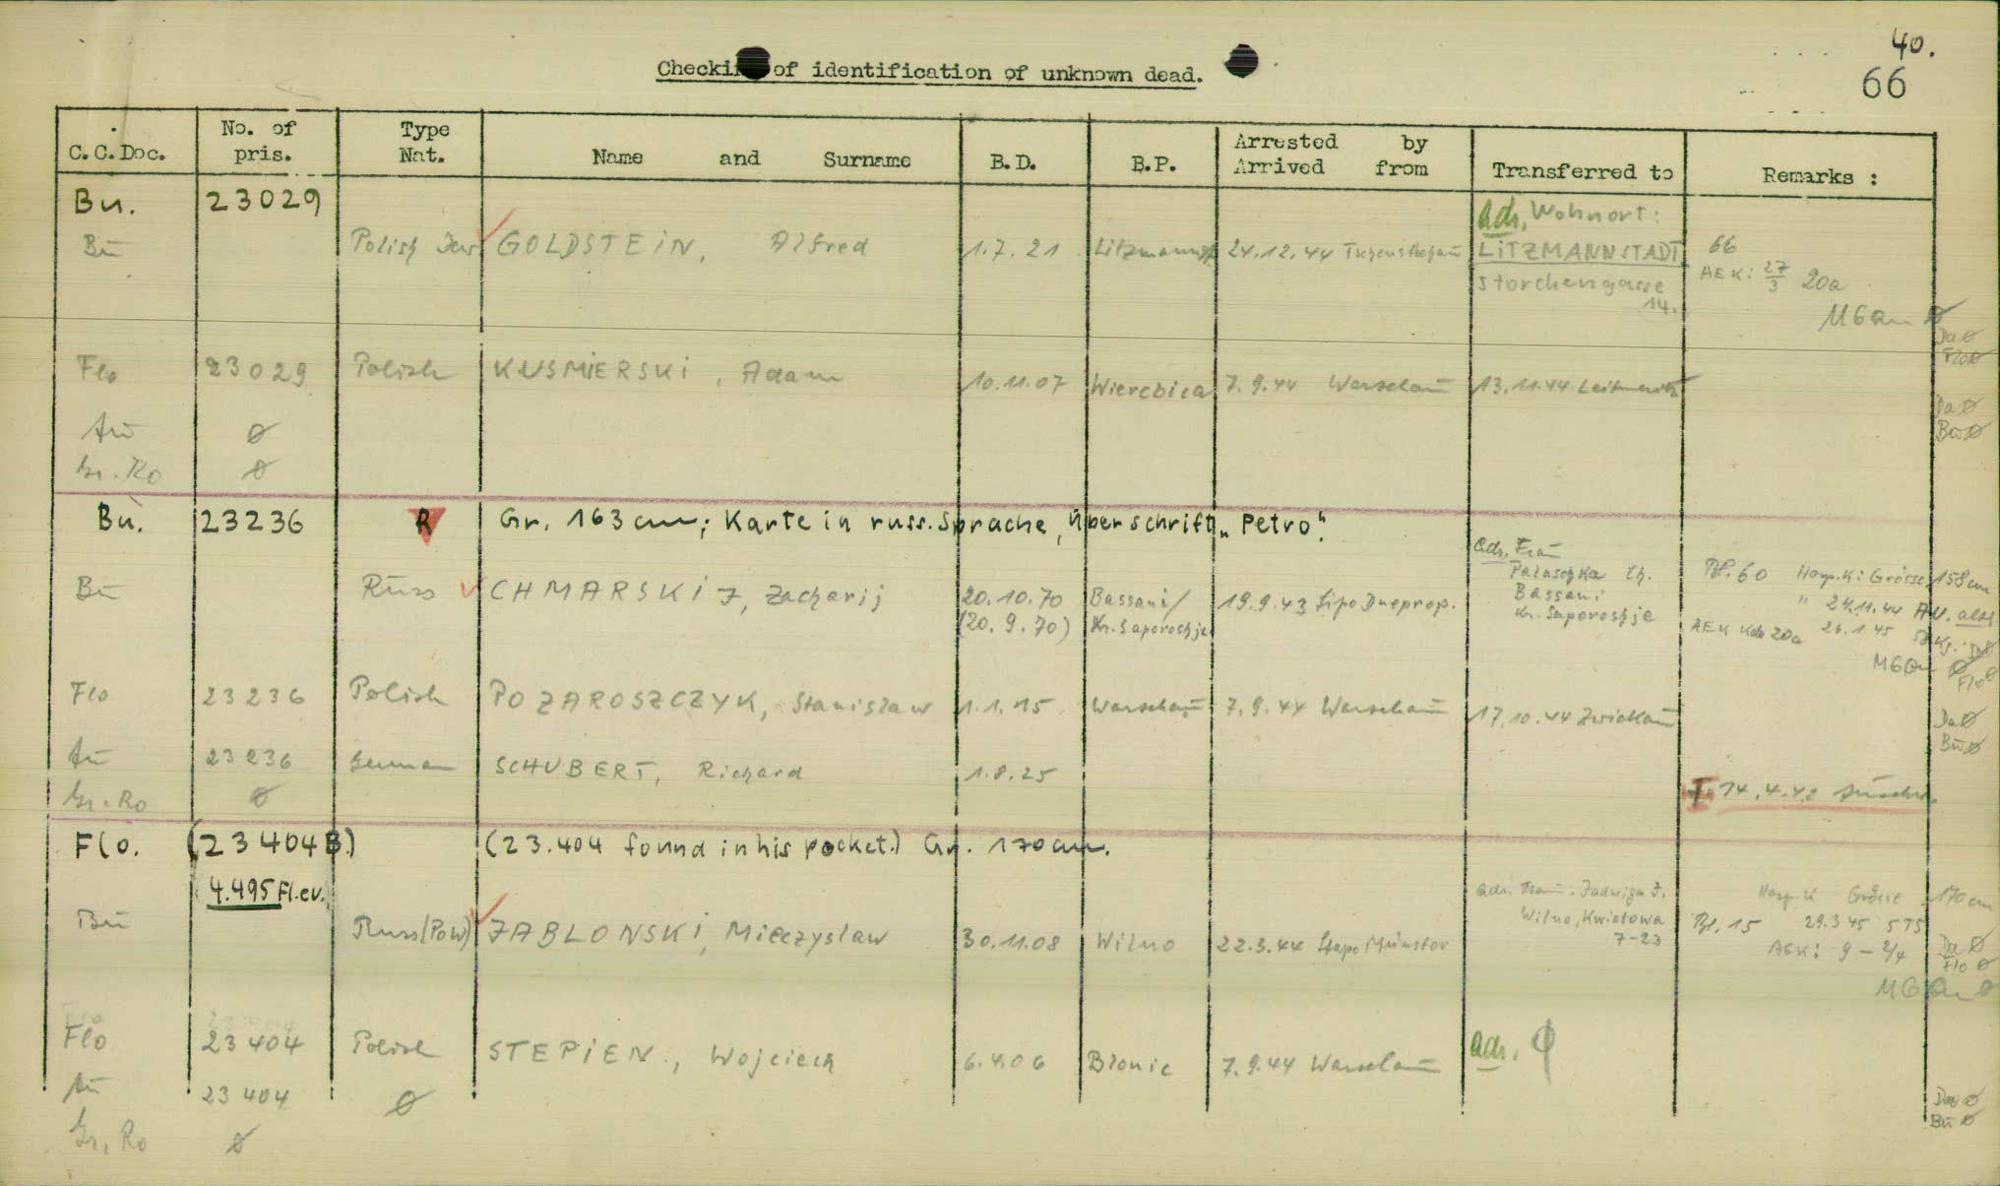 40.
66
Checking of identification of unknown dead.
C.C.Doc. No. of pris. Type Nat. Name and Surname B.D. B.P. Arrested by Arrived from Transferred to Remarks :
Bu. 23029
adr. Wohnort:
Bū Polish Jew GOLDSTEIN, Alfred 1.7.21 Litzmannst 24.12.44 Tschenstochau LITZMANNSTADT 66
Storchengasse AEK: 27/3 20a
14.
Da ø
Flo ø
Flo 23029 Polish KUSMIERSKI, Adam 10.11.07 Wiercbica 7.9.44 Warschau 13.11.44 Leitmeritz
Da ø
Au ø Bu ø
Gr. Ro ø
Bu. 23236 R Gr. 163 cm; Karte in russ. Sprache, Überschrift „Petro".
adr. Frau
Palaschka Ch. Bl. 60 Hosp.K: Grösse 158 cm
Bū Russ CHMARSKIJ, Zacharij 20.10.70 Bassani/ 19.9.43 Sipo Dneprop. Bassani " 24.11.44
(20.9.70) Kr. Saporoshje Kr. Saporoshje AEK 20a 26.1.45
Flo ø
Flo 23236 Polish POZAROSZCZYK, Stanislaw 1.1.15 Warschau 7.9.44 Warschau 17.10.44 Zwickau Da ø
Bū ø
Au 23236 German SCHUBERT, Richard 1.8.25
Gr. Ro ø 14.4.42
Flo. (23404B.) (23.404 found in his pocket.) Gr. 170 cm.
4.495 Fl.ev.
adr. Frau: Jadwiga J. Hosp.K Grösse 170 cm
Bū Russ (PoW) JABLONSKI, Mieczyslaw 30.11.08 Wilno 22.3.44 Stapo Münster Wilno, Kwiatowa Bl. 15 29.3.45
7-23 AEK: 9 – 2/4 Da ø
Flo ø
Flo 23404 Polish STEPIEN, Wojciech 6.4.06 Blonie 7.9.44 Warschau adr. φ
Au 23404 ø Da ø
Bu ø
Gr. Ro ø